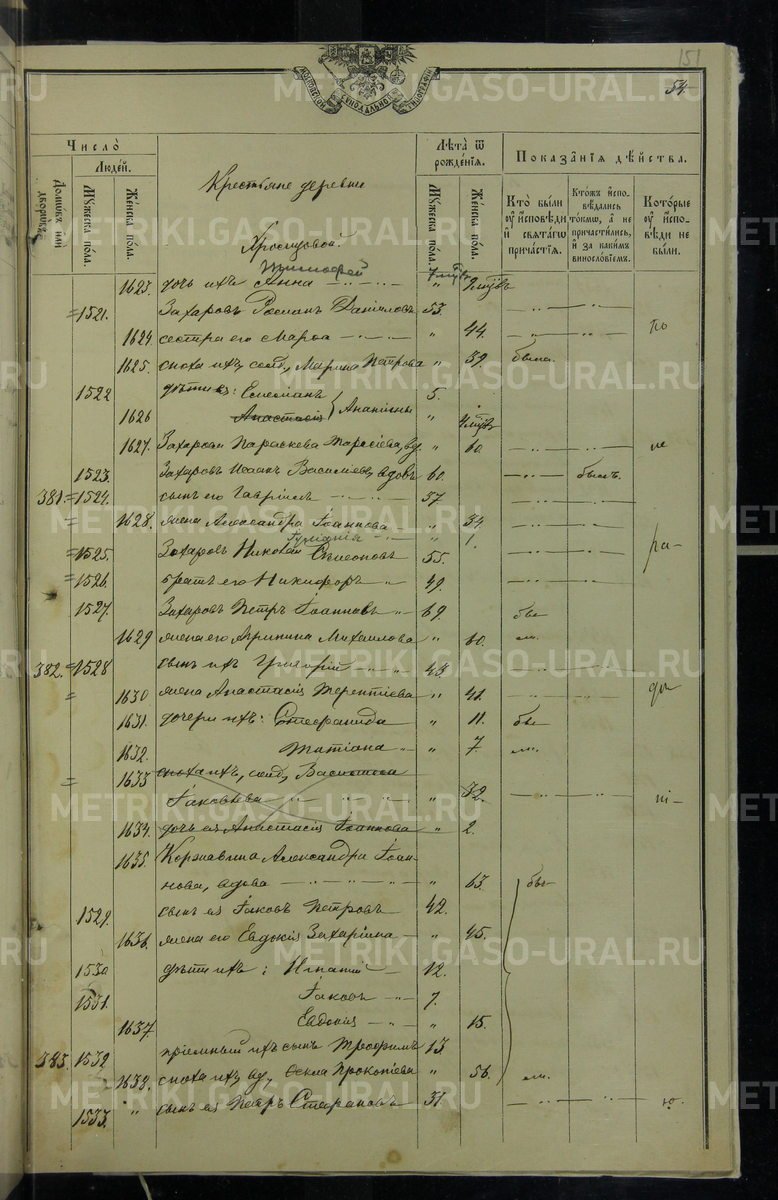 151
54.
МОСКОВСКОЙ СѴНОДАЛЬНОЙ ТИПОГРАФІИ
Число̀
Людей.
Домѡвъ или дворѡвъ.
Мꙋжеска по́ла.
Же́нска по́ла.
Крестьяне деревни
Лѣ́та ѿ рожде́нїѧ.
Мꙋжеска по́ла.
Же́нска по́ла.
Показа̑нїѧ дѣ́йства.
Кто̀ бы́ли ᲂу҆ и҆́сповѣди и҆ свѧта́гѡ прича́стїѧ.
Кто́жъ и҆спо-вѣ́дались то́кмѡ, а҆ не причасти́лись, и҆ за каки́мъ винослѡ́вїемъ.
Кото́рые ᲂу҆ и҆́спо-вѣди не бы́ли.
Тимофей
1623. дочь ихъ Анна — " —
=1521. Захаровъ Романъ Данииловъ 53.
1624 сестра его Марѳа — " 44. по
1625. сноха ихъ, солд. Марина Петрова " 39. была.
1522 дѣти ея: Емельянъ 5.
1626 Анастасія } Ананіины "
1627. Захарова Параскева Тарасіева, вд. " 60. не
1523. Захаровъ Исаакъ Василіевъ, вдовъ 60. былъ.
381. =1524. сынъ его Гавріилъ — " — 37
= 1628. жена Александра Іоаннова " 34
" 1.
=1525. Захаровъ Николай Симеоновъ 55. ра-
=1526. братъ его Никифоръ — " 49.
1527. Захаровъ Петръ Іоанновъ — " 69. бы-
1629 жена его Агрипина Михаилова " 60. ли.
382. =1528 сынъ ихъ Григорій — " — " 43.
= 1630 жена Анастасія Терентіева " 42.
1631. дочери ихъ: Стефанида " 11. бы-
1632. Татіана — " " 7. ли.
= 1633 сноха ихъ, солд. Васильева
Іаковлева — " — " " 32. ні-
1634. дочь ея Анастасія Іоаннова " 2.
1635. Коржавина Александра Іоан-
нова, вдова — " — " " 63. бы-
1529. сынъ ея Іаковъ Петровъ — 42.
1636. жена его Евдокія Захаріина — " 45.
1530 дѣти ихъ: Игнатій — 12.
1531. Іаковъ — " — 7.
1637 Евдокія — " — " 15.
383. 1532 пріемный ихъ сынъ Трофимъ 13.
1638. сноха ихъ, вд. Ѳекла Прокопіева " 56. ли.
1533. " сынъ ея Петръ Стефановъ 31. ю.